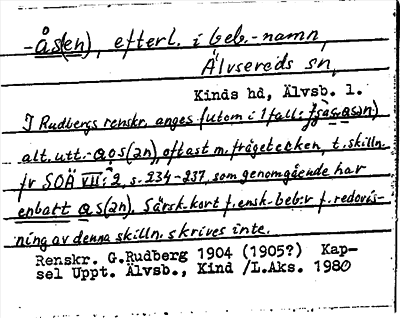 -ås(en), efterl. i beb.-namn,
Älvsereds sn,
Kinds hd, Älvsb. l.
I Rudbergs renskr. anges (utom i 1 fall:
alt. utt. -ɑos(ən), oftast m. frågetecken, t. skilln.
fr SOÄ VII:2, s. 234-237, som genomgående har
enbatt ɑs(ən). Särsk. kort f. ensk. beb:r f. redovis-
ning av denna skilln. skrives inte.
Renskr. G.Rudberg 1904 (1905?) Kap-
sel Uppt. Älvsb., Kind /L.Aks. 1980